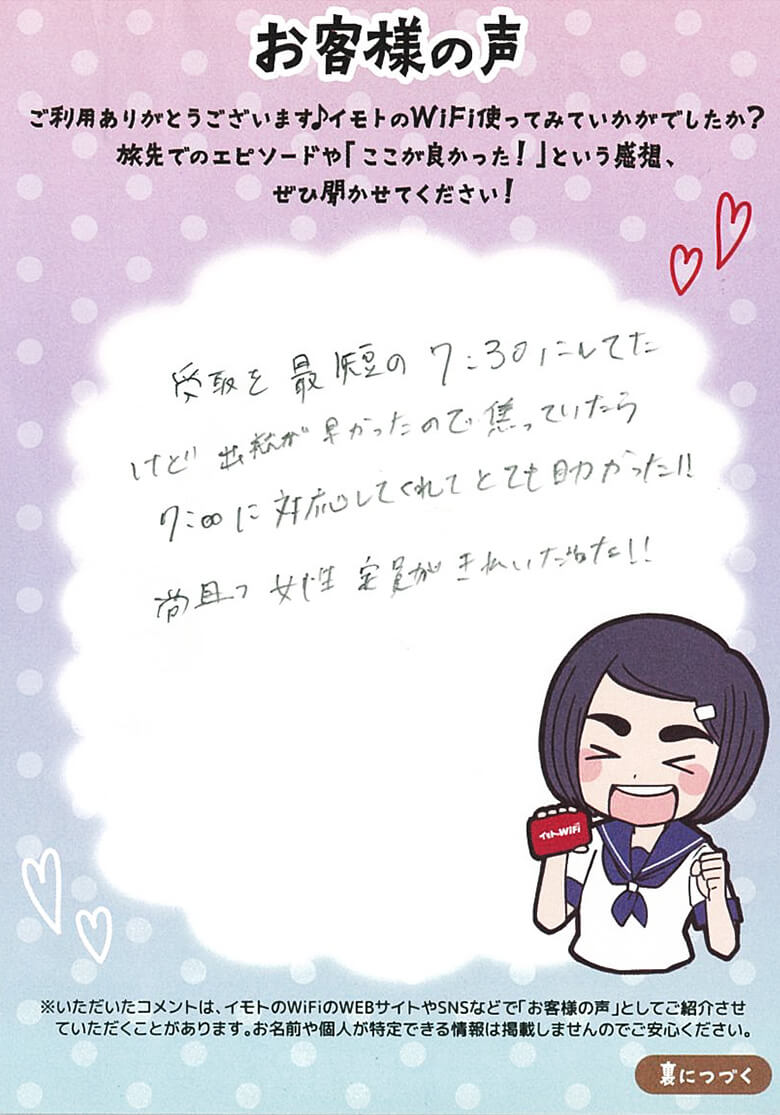 お客様の声
ご利用ありがとうございます♪イモトのWiFi使ってみていかがでしたか?
旅先でのエピソードや「ここが良かった!」という感想、
ぜひ聞かせてください!
受取を最短の7:30にしてた
けど出航が早かったので焦っていたら
7:00に対応してくれてとても助かった!!
尚且つ女性定員がきれいだった!!
イモトのWiFi
※いただいたコメントは、イモトのWiFiのWEBサイトやSNSなどで「お客様の声」としてご紹介させ
ていただくことがあります。お名前や個人が特定できる情報は掲載しませんのでご安心ください。
裏につづく